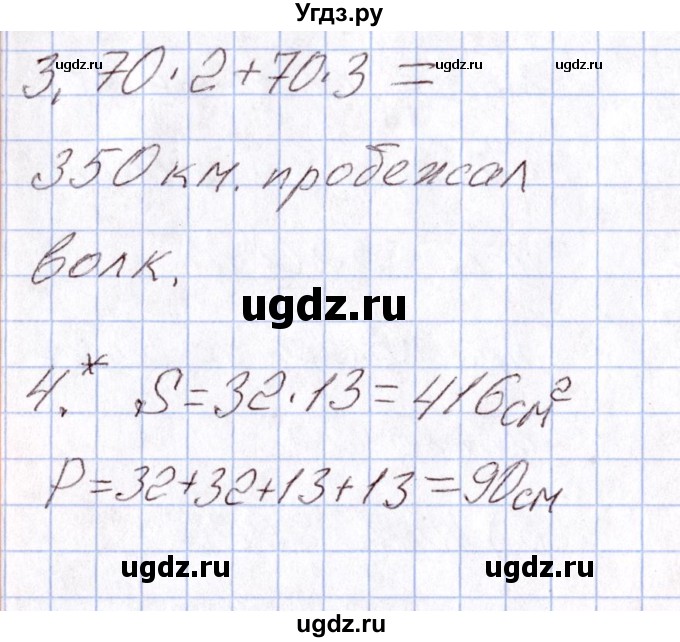 Угдз.ру
ugdz.ru ugdz.ru ugdz.ru
3, 70·2+70·3 =
350 км. пробежал
волк.
ugdz.ru
4.* S=32·13=416см²
P=32+32+13+13=90см
ugdz.ru ugdz.ru
ugdz.ru